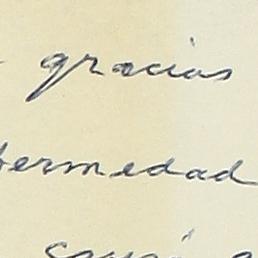 gracias
fermedad